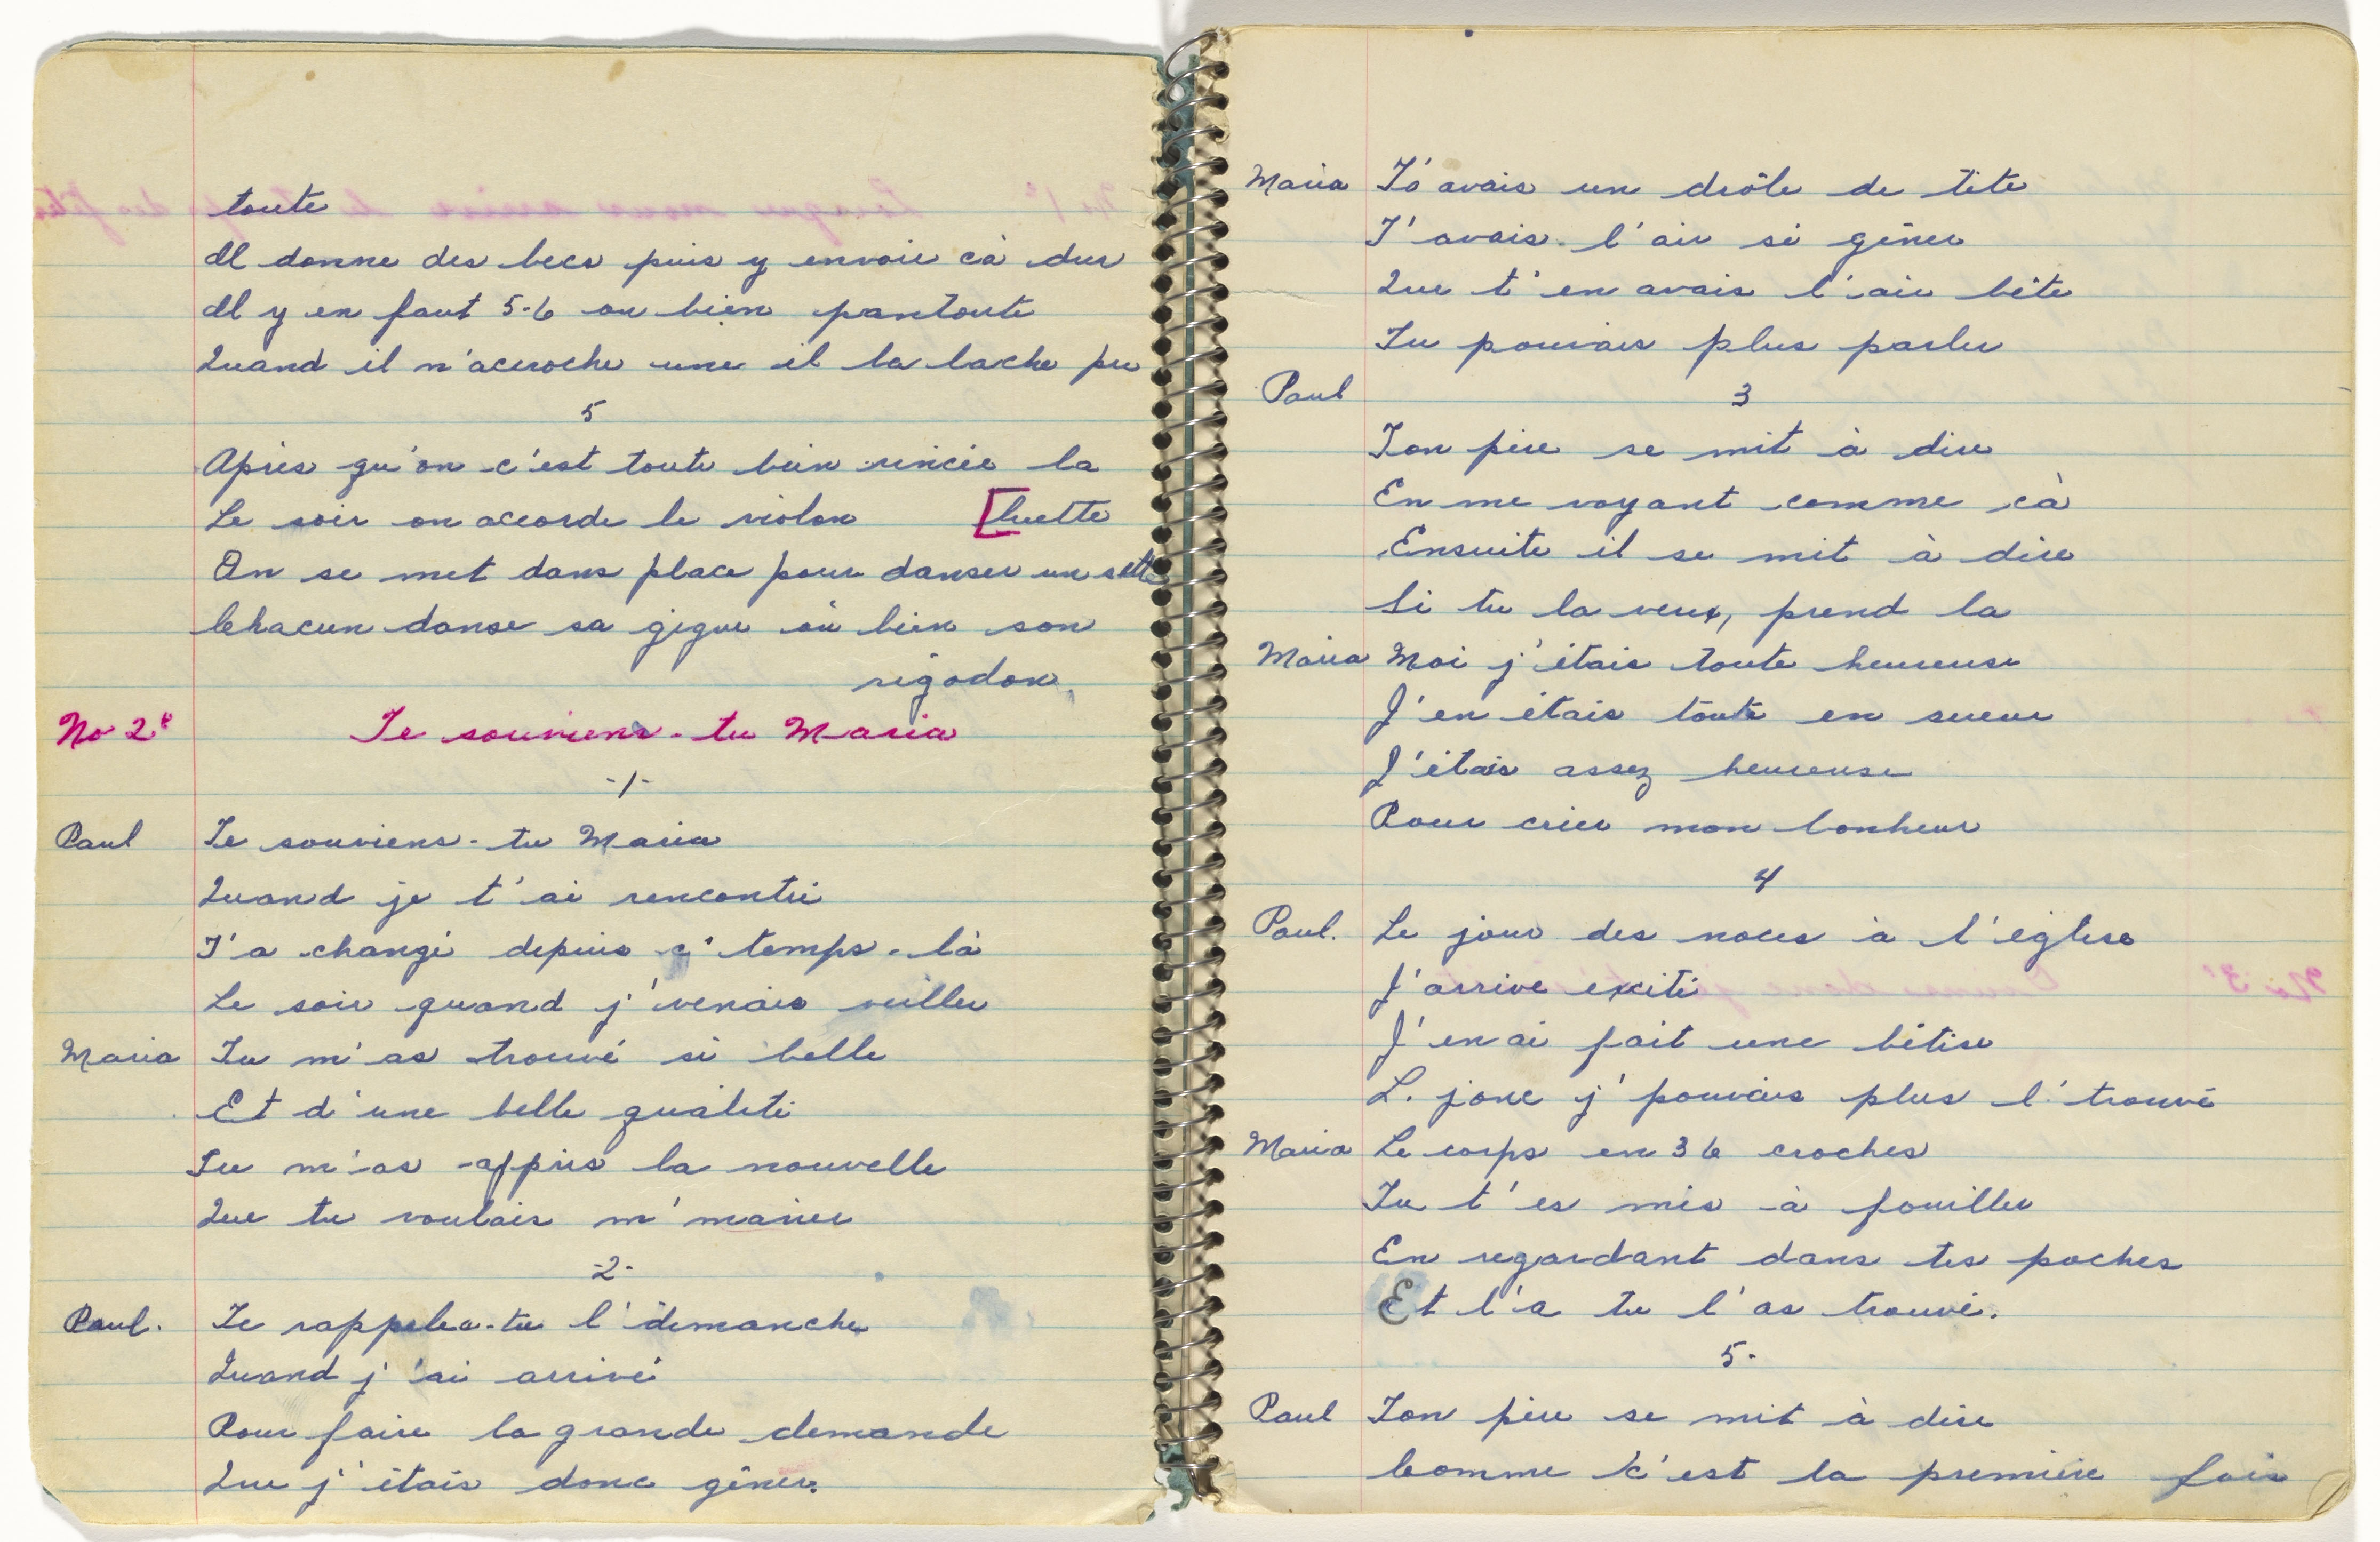 toute
Il donne des becs puis y envoie cà dur
Il y en faut 5-6 ou bien pantoute
Quand il n'accroche une il la lache pu
5
Après qu'on c'est toute bien rincée la
[luette
Le soir on accorde le violon
On se met dans place pour danser un sett
Chacun danse sa gigue où bien son
rigodon.
No 2e Te souviens-tu Maria
-1-
Paul Te souviens-tu Maria
Quand je t'ai rencontré
T'a changé depuis c' temps-là
Le soir quand j'venais veiller
Maria Tu m'as trouvé si belle
Et d'une belle qualité
Tu m'as appris la nouvelle
Que tu voulais m'marier
-2-
Paul. Te rappelea-tu l'dimanche
Quand j'ai arrivé
Pour faire la grande demande
Que j'étais donc gêner.
Maria T'avais un drôle de tête
T'avais l'air si gêner
Que t'en avais l'air bête
Tu pouvais plus parler
Paul 3
Ton père se mit à dire
En me voyant comme cà
Ensuite il se mit à dire
Si tu la veux, prend la
Maria Moi j'étais toute heureuse
J'en étais toute en sueur
J'étais assez heureuse
Pour crier mon bonheur
4
Paul. Le jour des noces à l'église
J'arrive excité
J'en ai fait une bêtise
L. jonc j'pouvais plus l'trouvé
Maria Le corps en 36 croches
Tu t'es mis à fouiller
En regardant dans tes poches
Et l'a tu l'as trouvé.
5-
Paul Ton père se mit à dire
Comme c'est la première fois